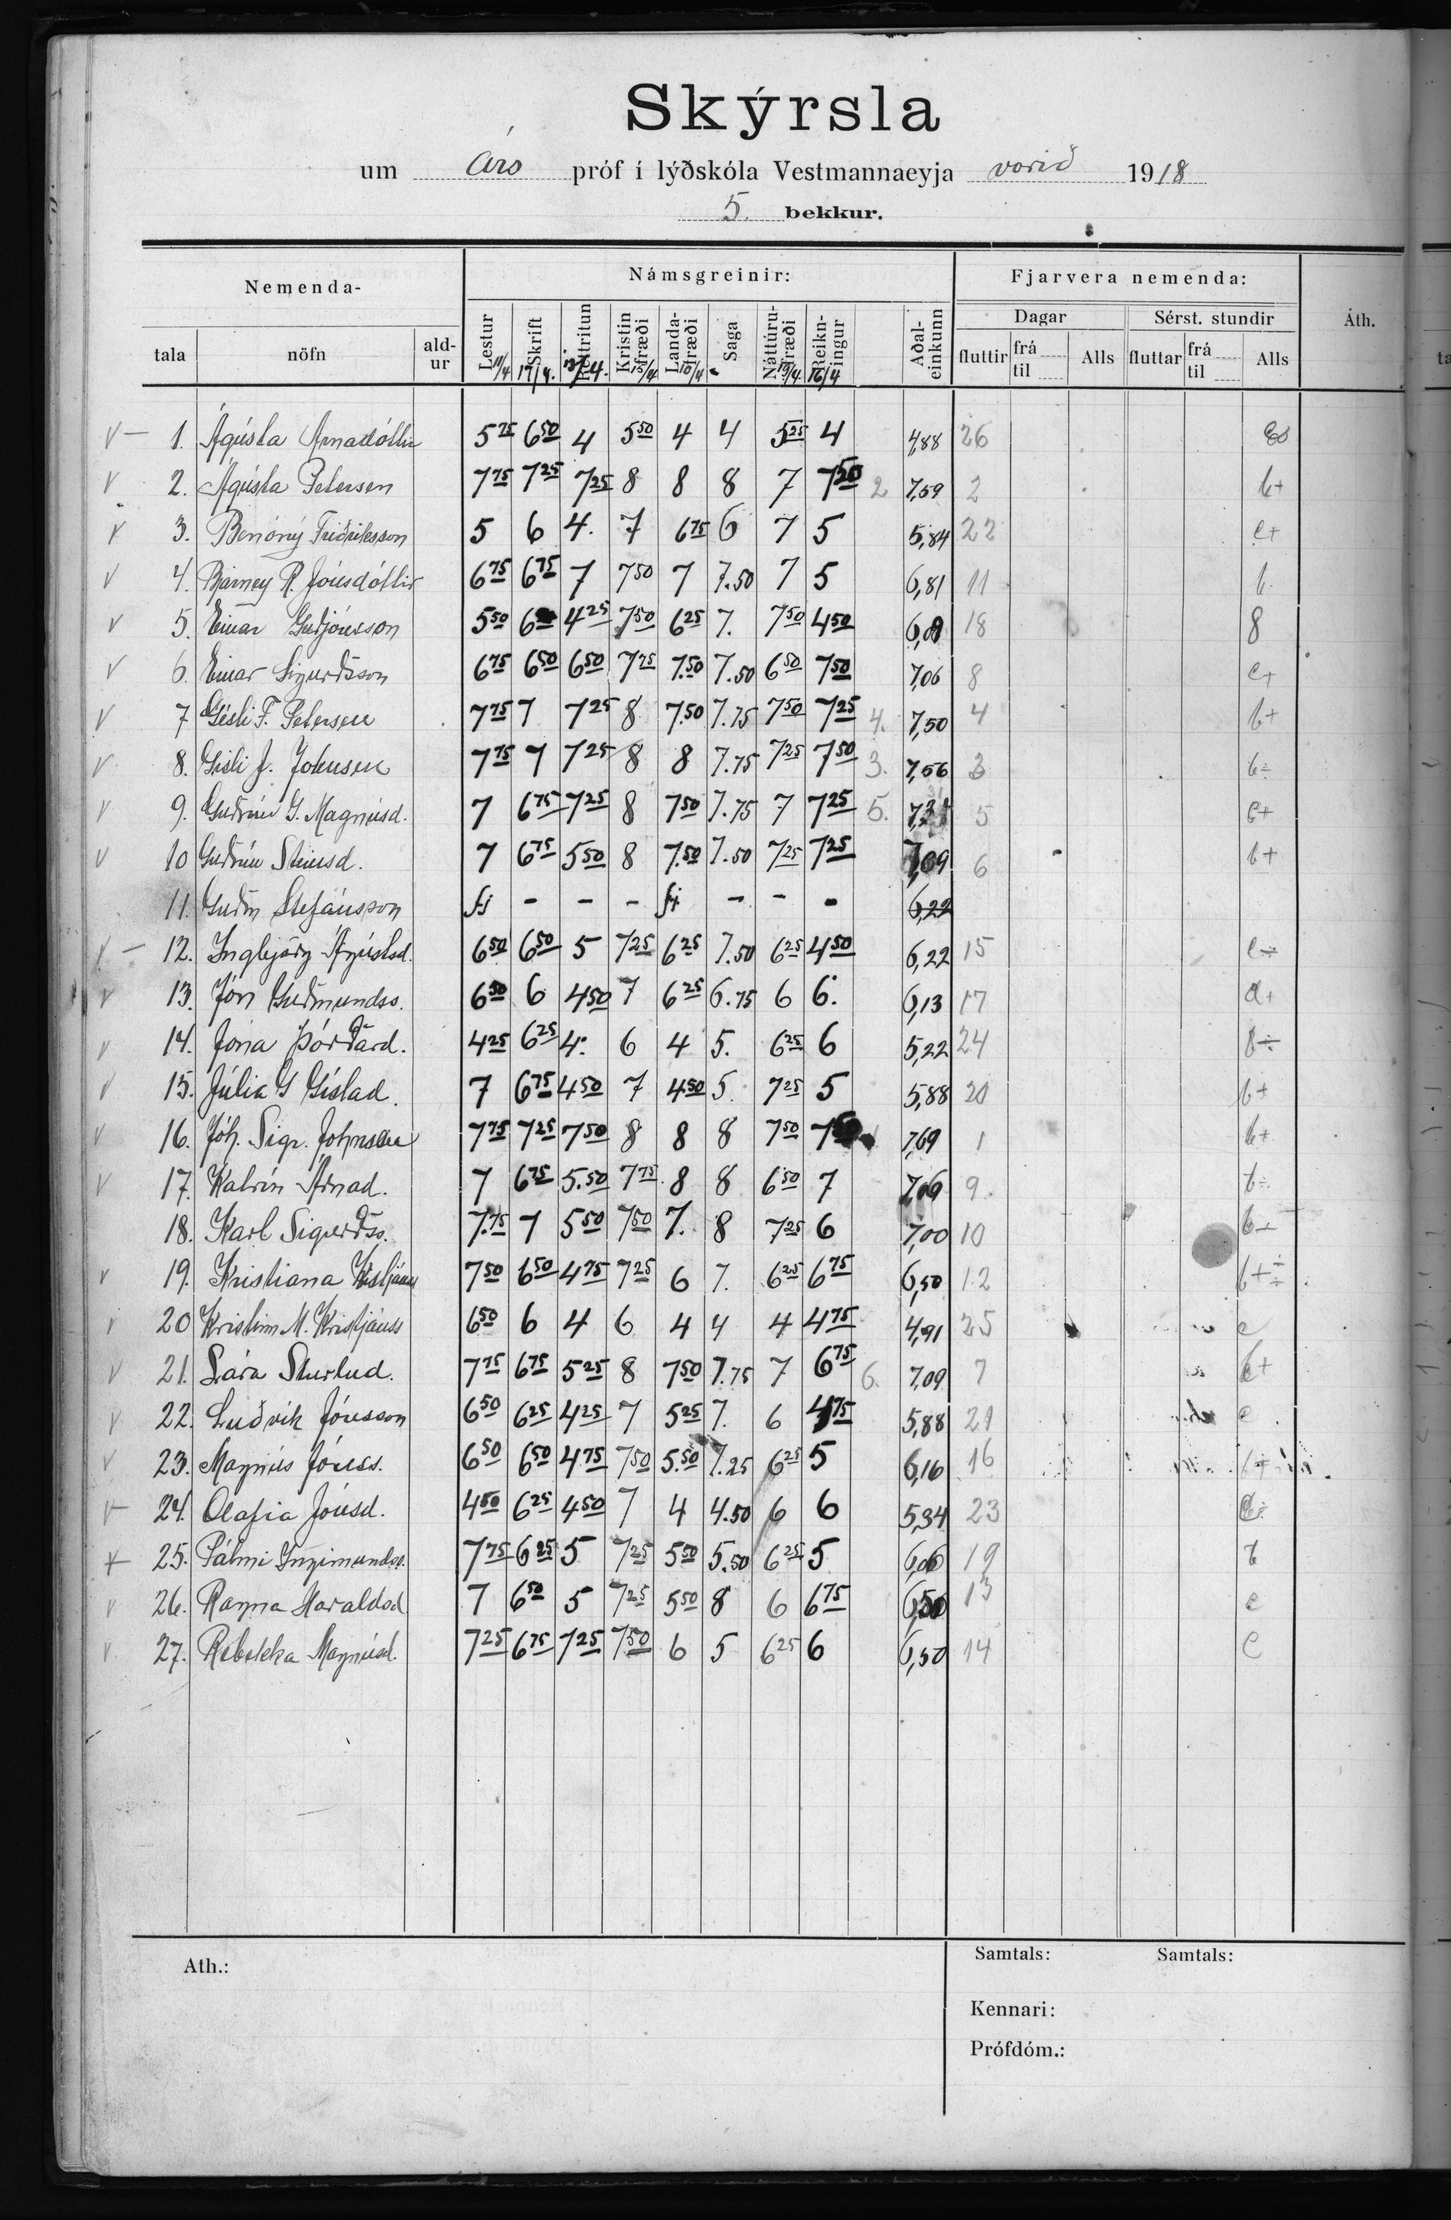 Skýrsla
um Árs próf í lýðskóla Vestmannaeyja vorið 1918
5. bekkur.
Nemenda- Námsgreinir: Fjarvera nemenda: Áth.
Dagar Sérst. stundir
tala nöfn ald-ur Lestur Skrift Réttritun Kristin fræði Landa-fræði Saga Náttúru-fræði Reikn-ingur Aðal-einkunn fluttir frá til Alls fluttar frá til Alls
11/4 17/4. 13/4. 15/4 18/4 19/4. 16/4
1. Ágústa Árnadóttir 5 75 6 50 4 5 50 4 4 5 25 4 4,88 26
2. Ágústa Petersen 7 75 7 25 7 25 8 8 8 7 7 50 2 7,59 2 b+
3. Benóný Friðriksson 5 6 4. 7 6 75 6 7 5 5,84 22 c+
4. Bjarney R. Jónsdóttir 6 75 6 75 7 7 50 7 7.50 7 5 6,81 11 b
5. Einar Guðjónsson 5 50 6 4 25 7 50 6 25 7. 7 50 4 50 6,09 18 8
6. Einar Sigurðsson 6 75 6 50 6 50 7 75 7.50 7.50 6 50 7 50 7,06 8 c+
7 Gísli F. Petersen 7 75 7 7 25 8 7.50 7.75 7 50 7 25 4. 7,50 4 b+
8. Gísli J. Johnsen 7 75 7 7 25 8 8 7.75 7 25 7 50 3. 7,56 3 b÷
9. Guðrún G. Magnúsd. 7 6 75 7 25 8 7 50 7.75 7 7 25 5. 7,31 5 c+
10 Guðrún Steinsd. 7 6 75 5 50 8 7.50 7.50 7 25 7 25 7,09 6 b+
11. Guðm Stefánsson fj - - - fj - - - 6,22
12. Ingibjörg Ágústsd. 6 50 6 50 5 7 25 6 25 7.50 6 25 4 50 6,22 15 c÷
13. Jón Guðmundss. 6 50 6 4 50 7 6 25 6.75 6 6. 6,13 17 d+
14. Jóna Þórðard. 4 25 6 25 4. 6 4 5. 6 25 6 5,22 24 8÷
15. Júlía G Gíslad. 7 6 75 4 50 7 4 50 5. 7 25 5 5,88 20 b+
16. Jóh. Sigr. Johnsen 7 75 7 25 7 50 8 8 8 7 50 7 7,69 1 b+
17. Katrín Árnad. 7 6 75 5.50 7 75 8 8 6 50 7 7,09 9. b÷
18. Karl Sigurðss. 7.75 7 5 50 7 50 7. 8 7 25 6 7,00 10
19. Kristiana Kristjánsd 7 50 6 50 4 75 7 25 6 7. 6 25 6 75 6,50 12
20 Kristinn M. Kristjánss 6 50 6 4 6 4 4 4 4 75 4,91 25 c
21. Lára Sturlud. 7 75 6 75 5 25 8 7 50 7.75 7 6 75 6. 7,09 7 b+
22. Luðvík Jónsson 6 50 6 25 4 25 7 5 25 7. 6 4 75 5,88 21 c
23. Magnús Jónss. 6 50 6 50 4 75 7 50 5.50 7.25 6 25 5 6,16 16
24. Olafia Jónsd. 4 50 6 25 4 50 7 4 4.50 6 6 5,34 23
25. Pálmi Ingimundss. 7 75 6 25 5 7 25 5 50 5.50 6 25 5 6,06 19 b
26. Ragna Haraldsd. 7 6 50 5 7 25 5 50 8 6 6 75 6,50 13 c
27. Rebekka Magnúsd. 7 25 6 75 7 25 7 50 6 5 6 25 6 6,50 14 C
Ath.: Samtals: Samtals:
Kennari:
Prófdóm.: